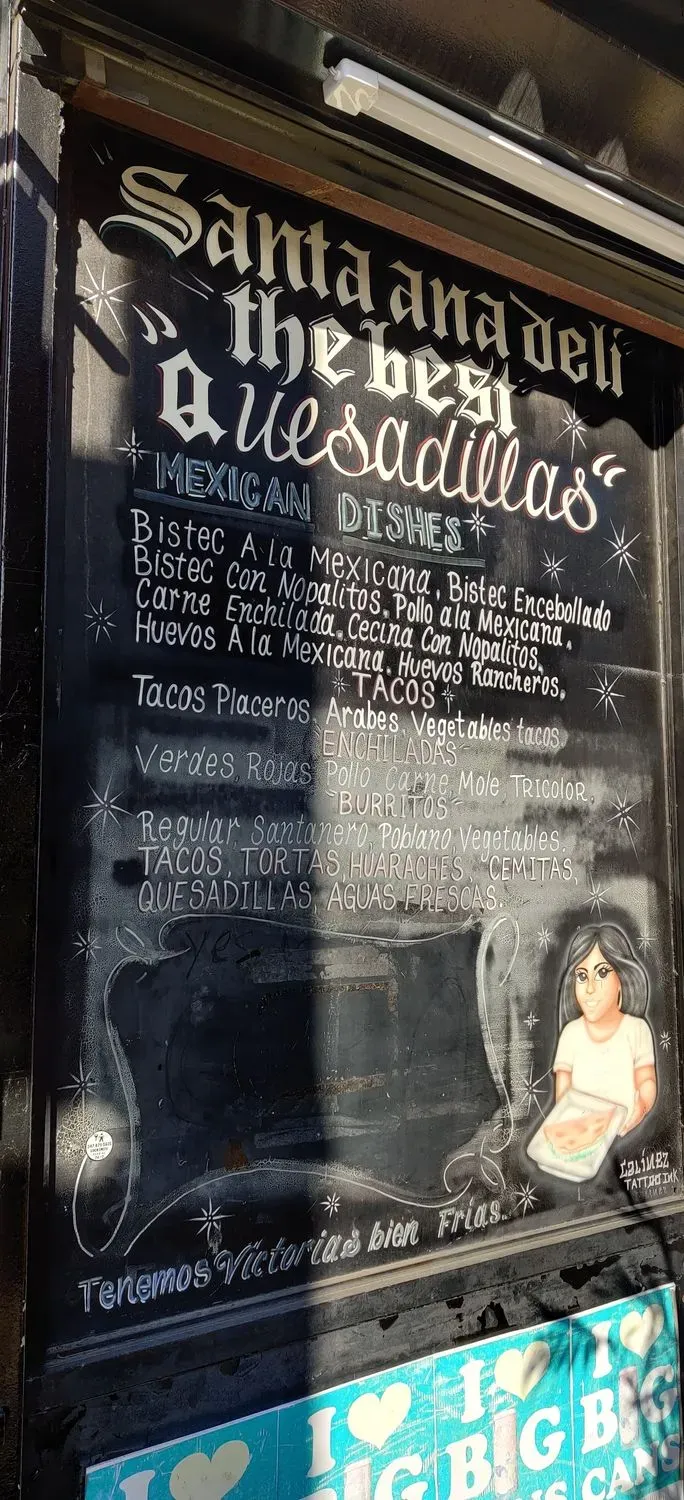 Santa ana deli
the best
"Quesadillas"
MEXICAN DISHES
Bistec A La Mexicana, Bistec Encebollado
Bistec Con Nopalitos, Pollo a la Mexicana,
Carne Enchilada, Cecina Con Nopalitos,
Huevos A la Mexicana, Huevos Rancheros,
TACOS
Tacos Placeros, Arabes, Vegetables tacos.
"ENCHILADAS"
Verdes, Rojas Pollo Carne, Mole, TRICOLOR,
"BURRITOS"
Regular, Santanero, Poblano, Vegetables.
TACOS, TORTAS, HUARACHES, CEMITAS,
QUESADILLAS, AGUAS FRESCAS.
yes
Tenemos Victorias bien Frias.
TATTOO INK
I I I I
BIG BIG BIG
CANS